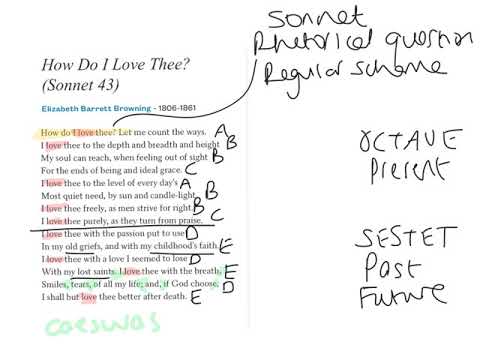 Sonnet
Rhetorical question
Regular scheme
How Do I Love Thee?
(Sonnet 43)
Elizabeth Barrett Browning - 1806-1861
How do I love thee? Let me count the ways. A
I love thee to the depth and breadth and height B
My soul can reach, when feeling out of sight B
For the ends of being and ideal grace. C
I love thee to the level of every day's A
Most quiet need, by sun and candle-light. B
I love thee freely, as men strive for right. B
I love thee purely, as they turn from praise. C
I love thee with the passion put to use D
In my old griefs, and with my childhood's faith. E
I love thee with a love I seemed to lose D
With my lost saints. I love thee with the breath, E
Smiles, tears, of all my life; and, if God choose, D
I shall but love thee better after death. E
caeswas
OCTAVE
Present
SESTET
Past
Future